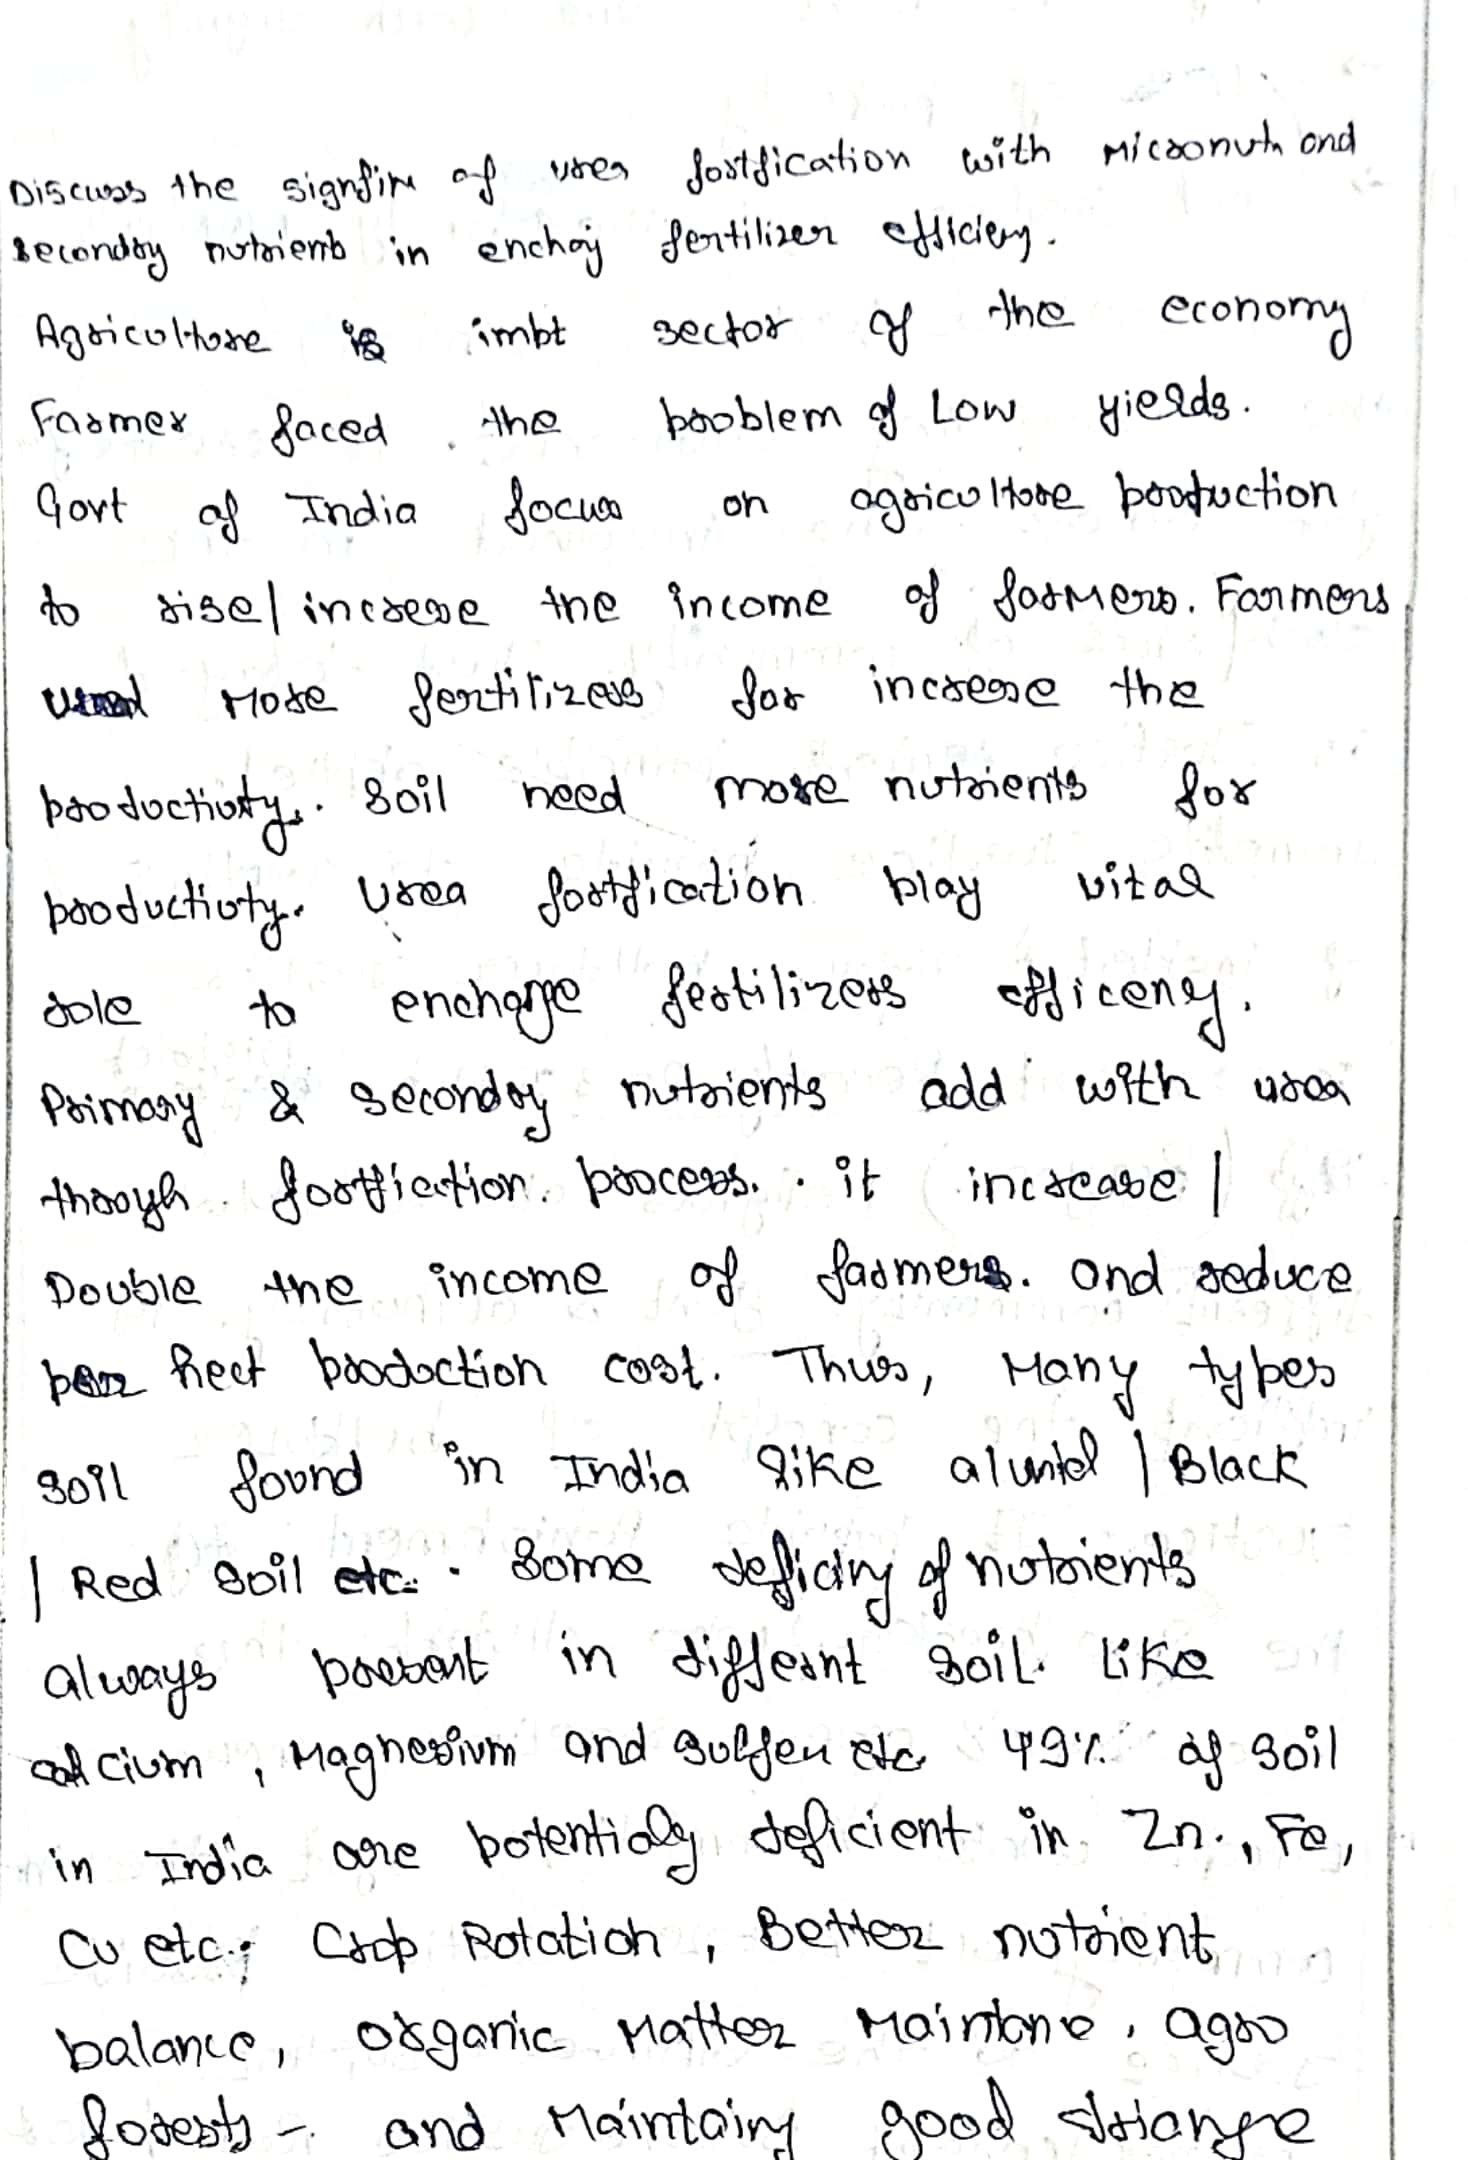 Discuss the signfin of urea fortfication with Micronutn and
Secondry nutrients in enchaj fertilizer efficieny.
Agriculture is impt sector of the economy
Farmer faced the problem of Low yields.
Govt of India focus on agriculture production
to rise/increase the income of farmers. Farmers
used More fertilizers for increase the
productivty. Soil need more nutrients for
productivty. Urea fortfication play vital
role to enchange fertilizers efficeny.
Primary & secondry nutrients add with urea
throygh fortfication process. it increase/
Double the income of farmers. and reduce
per hect production cost. Thus, Many types
soil found in India like aluntel / Black
/ Red soil etc. Some deficiny of nutrients
always present in differnt soil. Like
calcium, Magnesium and sulfer etc 49% of soil
in India are potentialy deficient in Zn., Fe,
Cu etc. Crop Rotation, Better nutrient
balance, organic Matter Maintane, agro
forests - and Maintainy good